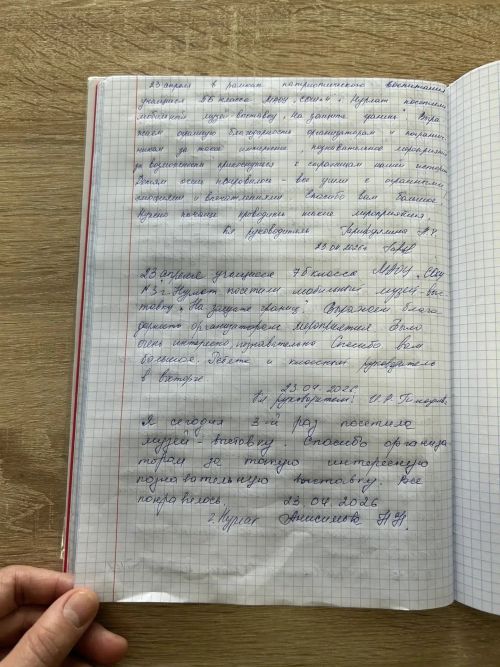 23 апреля в рамках патриотического воспитания
учащиеся 5Б класса МАОУ "СОШ № г. Нурлат" посетили
мобильный музей-выставку "На защите границ". Выра
жаем огромную благодарность организаторам и
за такое интересное, познавательное мероприятие
за возможность прикоснуться к страницам нашей истории
Детям очень понравилось - все ушли с огромными
эмоциями и впечатлениями. Спасибо вам большое.
Нужно почаще проводить такие мероприятия.
Кл. руководитель А.Р.
23.04.2026г
23 апреля учащиеся 7б класса МАОУ "СОШ
№3 г. Нурлат посетили мобильный музей-выс
тавку "На защите границ". Выражаем благо
дарность организаторам мероприятия. Было
очень интересно, познавательно. Спасибо вам
большое. Ребята и классный руководитель
в восторге.
23.04.2026
Кл руководитель:
Я сегодня 3-й раз посетила
музей-выставку. Спасибо организа
торам за такую интересную
познавательную выставку. Все
понравилось. 23.04.2026
г. Нурлат Анисимова Н.Н.